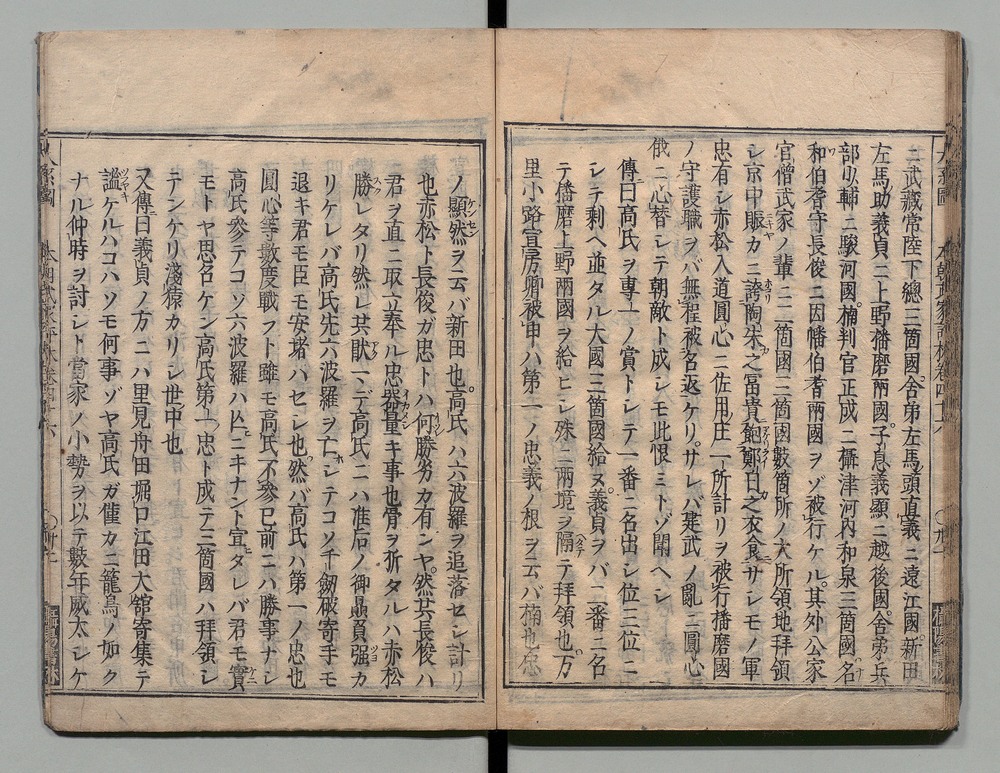 ニ武藏常陸下總三箇國舍弟左馬頭直義ニ遠江國新田
左馬助義貞ニ上野播磨兩國子息義顯ニ越後國舍弟兵
部少輔ニ駿河國楠判官正成ニ攝津河内和泉三箇國名
和伯耆守長俊ニ因幡伯耆兩國ヲゾ被行ケル其外公家
官僧武家ノ輩ニ二箇國三箇國數箇所ノ大所領地拜領
シ京中賑カニ誇陶朱之冨貴飽鄭白之衣食サレモノ軍
忠有シ赤松入道圓心ニ佐用庄一所計リヲ被行播磨國
ノ守護職ヲバ無程被名返ケリサレバ建武ノ亂ニ圓心
俄ニ心替シテ朝敵ト成シモ此恨ミトゾ聞ヘシ
傳曰高氏ヲ專一ノ賞トシテ一番ニ名出シ位三位ニ
シテ剩ヘ並タル大國三箇國給ヌ義貞ヲバ二番ニ名
テ播磨上野兩國ヲ給ヒシ殊ニ兩境ヲ隔テ拜領也万
里小路宣房卿被申ハ第一ノ忠義ノ根ヲ云バ楠也忠
ノ顯然ヲ云バ新田也高氏ハ六波羅ヲ追落セシ計リ
也赤松ト長俊ガ忠トハ何勝劣カ有ンヤ然共長俊ハ
君ヲ直ニ取立奉ル忠器量キ事也骨ヲ折タルハ赤松
勝レタリ然レ共一ニ高氏ニハ准后ノ御贔負强カ
リケレバ高氏先六波羅ヲ亡シテコソ千劔破寄手モ
退キ君モ臣モ安堵ハセシ也然バ高氏ハ第一ノ忠也
圓心等數度戰フト雖モ高氏不參已前ニハ勝事ナシ
高氏參テコソ六波羅ハ亡ニキナント宣タレバ君モ實
モトヤ思召ケン高氏第一ノ忠ト成テ三箇國ハ拜領シ
テンケリ淺猿カリシ世中也
又傳曰義貞ノ方ニハ里見舟田堀口江田大舘寄集テ
謐ケルハコハソモ何事ゾヤ高氏ガ僅カニ籠鳥ノ如ク
ナル仲時ヲ討シト當家ノ小勢ヲ以テ數年威太シケ